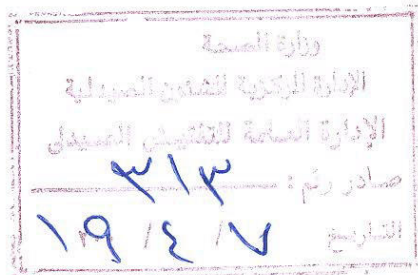 وزارة الصحة
الإدارة المركزية للشئون الصيدلية
الإدارة العامة للتفتيش الصيدلى
صادر رقم: ٣١٣
التاريخ ٧ / ٤ / ١٩